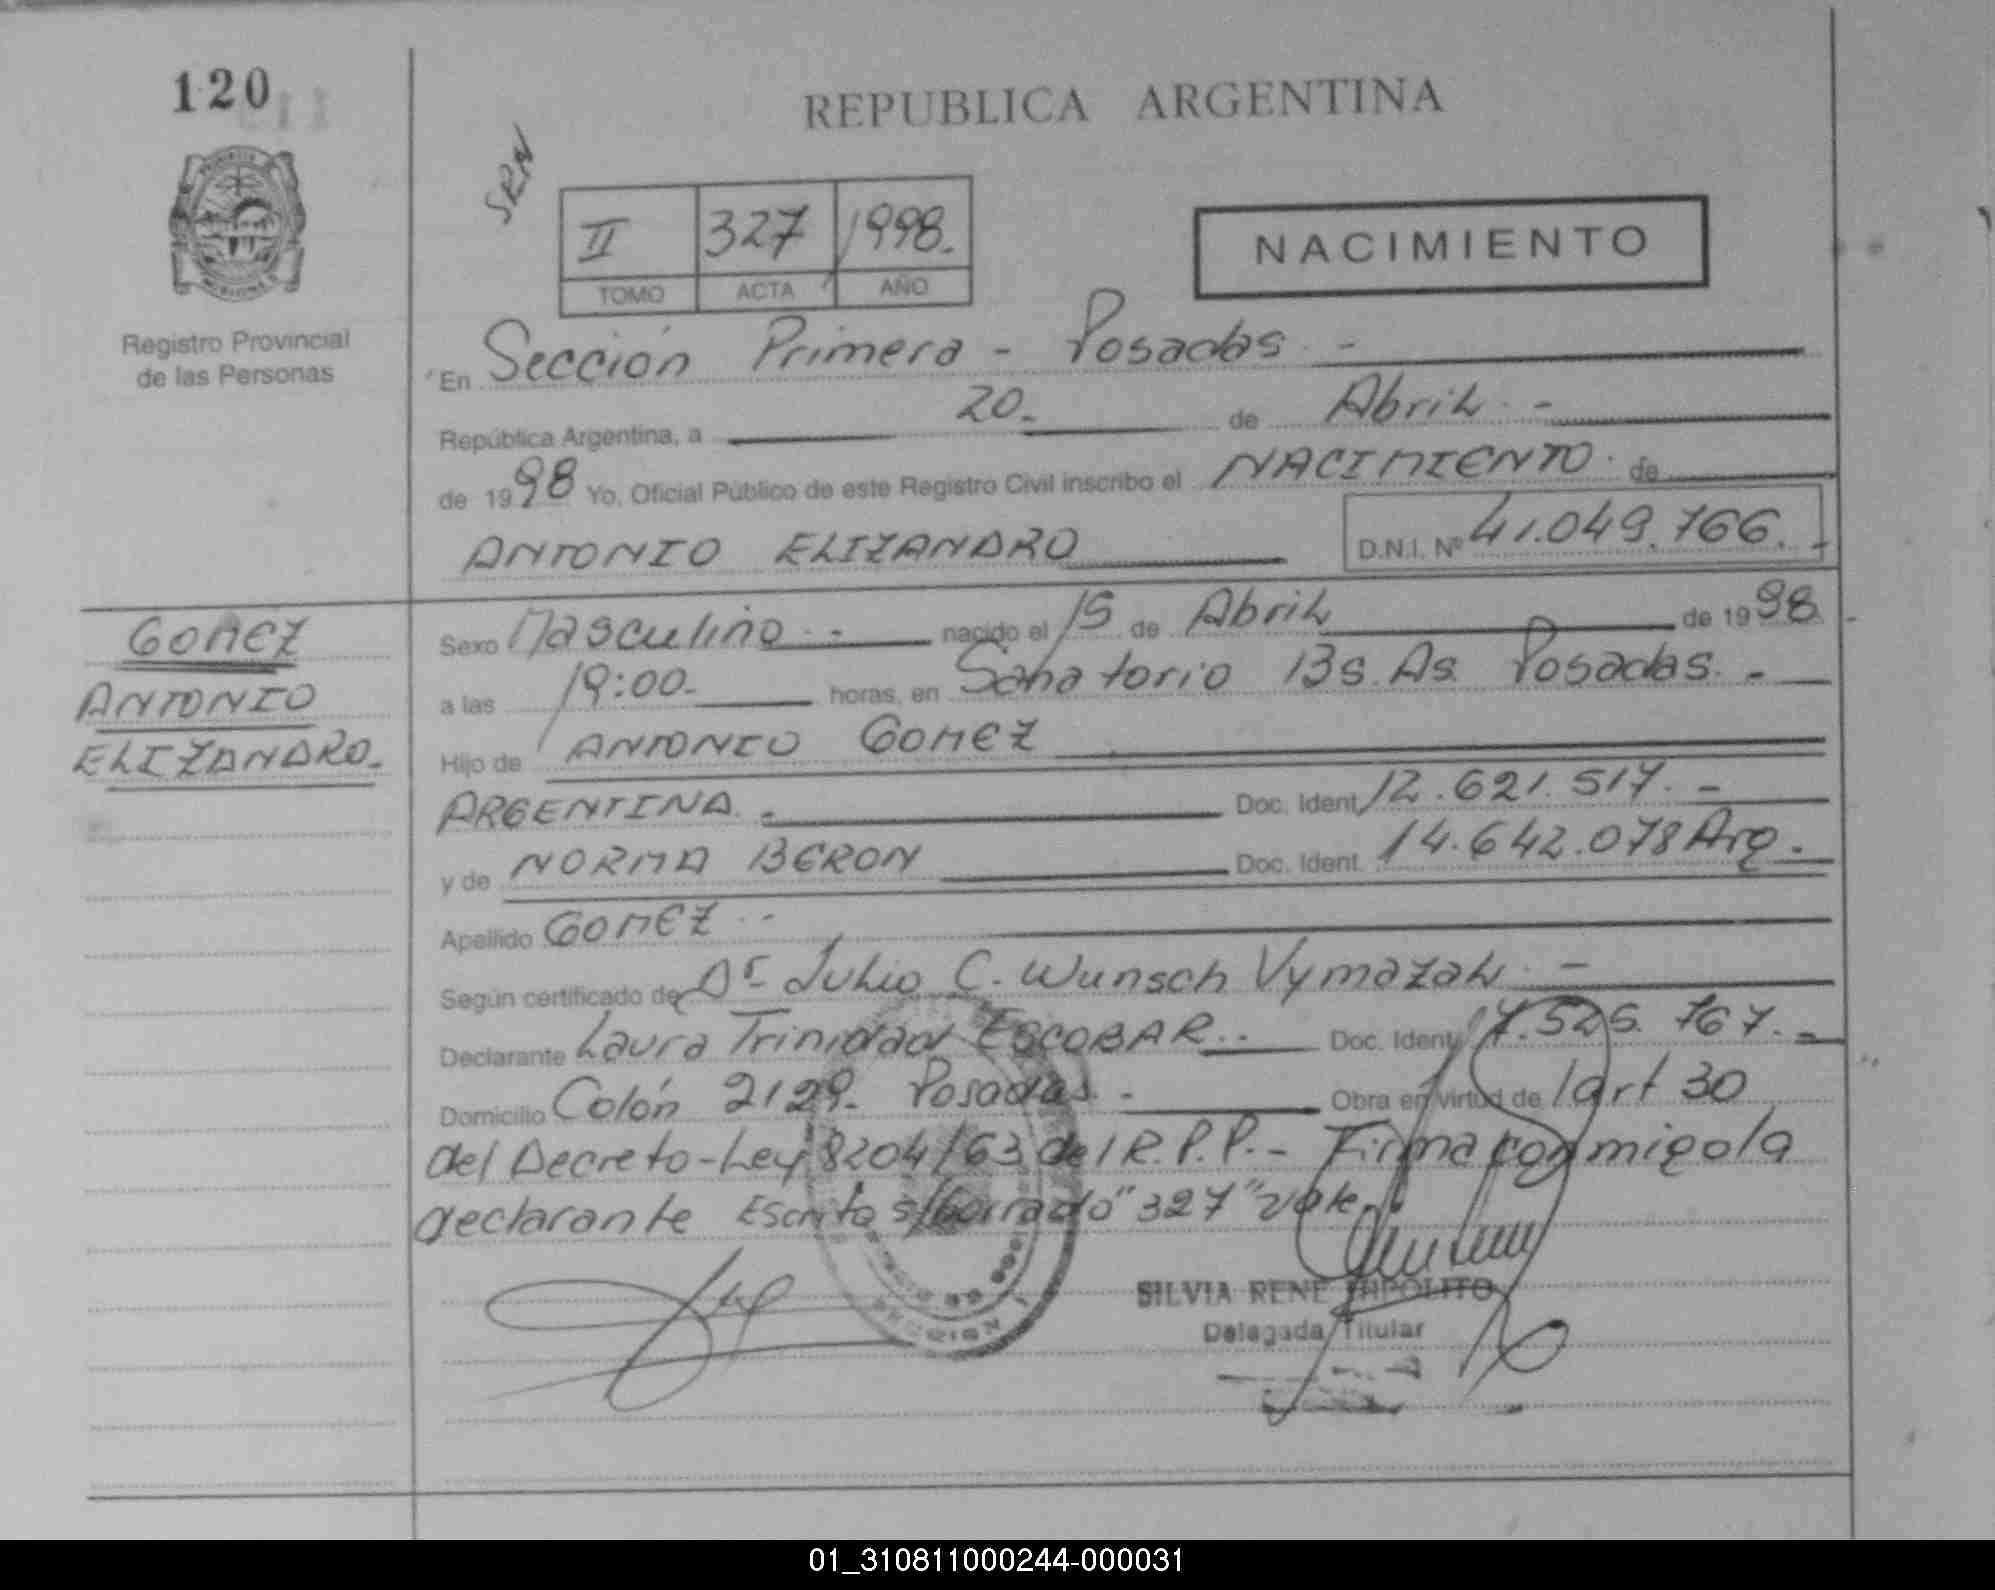 120
REPUBLICA ARGENTINA
SRN
II 327 1998.
TOMO ACTA AÑO
NACIMIENTO
Registro Provincial
de las Personas
En Sección Primera - Posadas. -
República Argentina, a 20. de Abril. -
de 1998 Yo, Oficial Público de este Registro Civil inscribo el NACIMIENTO. de
ANTONIO ELIZANDRO D.N.I. Nº 41.049.766. -
GOMEZ
ANTONIO
ELIZANDRO.
Sexo Masculino. - nacido el 15 de Abril de 1998
a las 19:00. horas, en Sanatorio Bs. As. Posadas. -
Hijo de ANTONIO GOMEZ
ARGENTINA. - Doc. Ident. 12.621.517. -
y de NORMA BERON Doc. Ident. 14.642.078 Arg.
Apellido GOMEZ. -
Según certificado de Dr Julio C. Wunsch Vymazal. -
Declarante Laura Trinidad ESCOBAR. - Doc. Ident. 17.525.767. -
Domicilio Colón 2129. Posadas. - Obra en virtud de l art 30
del Decreto-Ley 8204/63 del R.P.P. - Firma conmigo la
declarante Escrito s/borrado "327" vale.
SILVIA RENE HIPOLITO
Delegada Titular
01_310811000244-000031